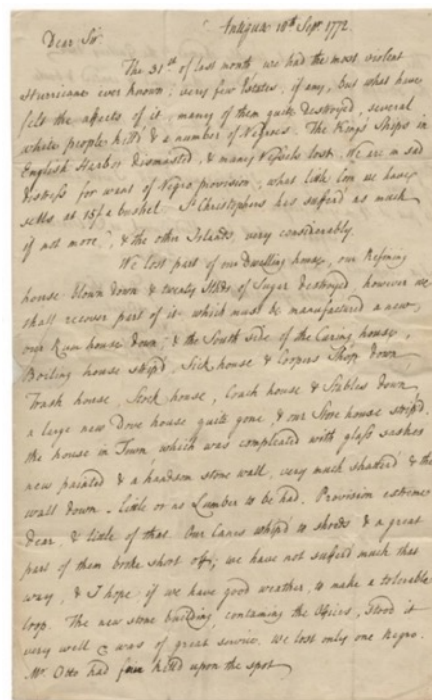 Antigua 18th Sepr. 1772.
Dear Sir
The 31st of last month we had the most violent
Hurricane ever known; very few Estates, if any, but what have
felt the affects of it, many of them quite destroyed, several
white people kill'd & a number of Negroes. The King's Ships in
English Harbor dismasted, & many Vessels lost. We are in sad
distress for want of Negro provision, what little Corn we have
sells at 15/ a bushel. St Christophers has sufer'd as much
if not more, & the other Islands, very considerably.
We lost part of our Dwelling house, our Refining
house blown down & twenty Hhds of Sugar destroyed, however we
shall recover part of it which must be manufactured a new,
our Rum house down; & the South side of the Curing house,
Boiling house strip'd, Sick house & Coopers Shop down,
Trash house, Stock house, Coach house & Stables down,
a large new Dove house quite gone, & our Store house strip'd.
the house in Town which was compleated with glass sashes
new painted & a handsom stone wall, very much shatter'd & the
wall down. little or no Lumber to be had. Provision extreme
dear, & little of that. Our Canes whip'd to shreds & a great
part of them broke short off; we have not sufferd much that
way, & I hope if we have good weather, to make a tolerable
Crop. The new stone building, containing the Offices, stood it
very well & was of great service. We lost only one Negro.
Mr. Otto had four kill'd upon the spot